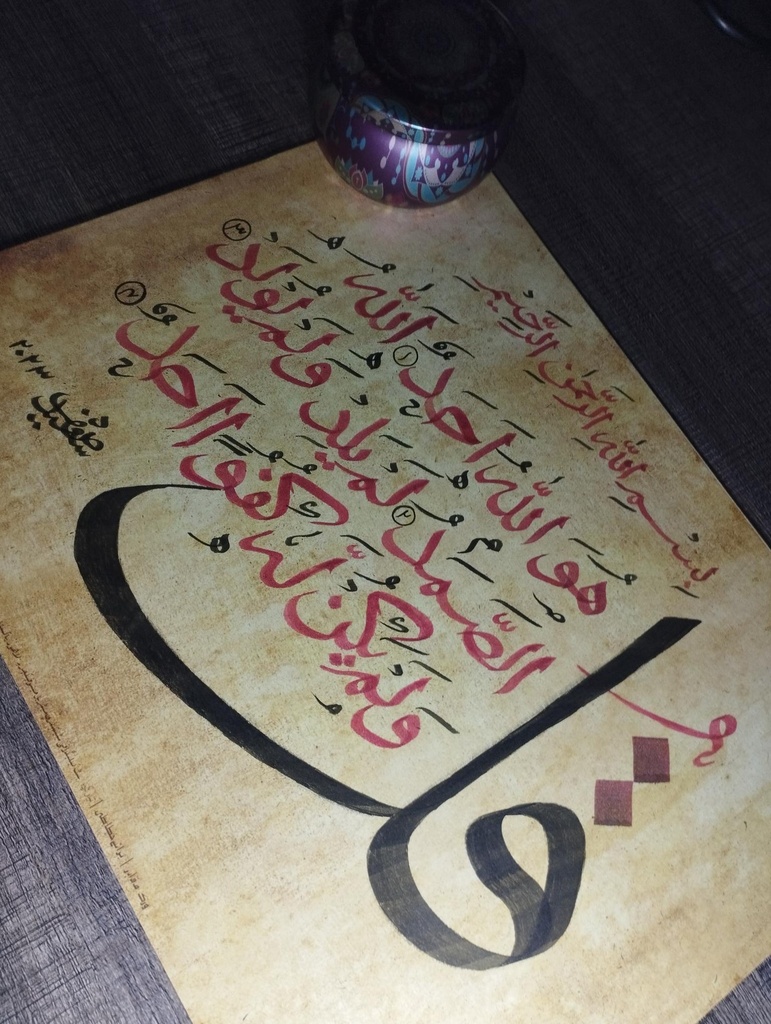 بِسْمِ اللَّهِ الرَّحْمَٰنِ الرَّحِيمِ
قُلْ
هُوَ اللَّهُ اَحَدٌ ١ اَللَّهُ
الصَّمَدُ ٢ لَمْ يَلِدْ وَلَمْ يُولَدْ ٣
وَلَمْ يَكُنْ لَهُ كُفُوًا اَحَدٌ ٤
٢٠٢٣